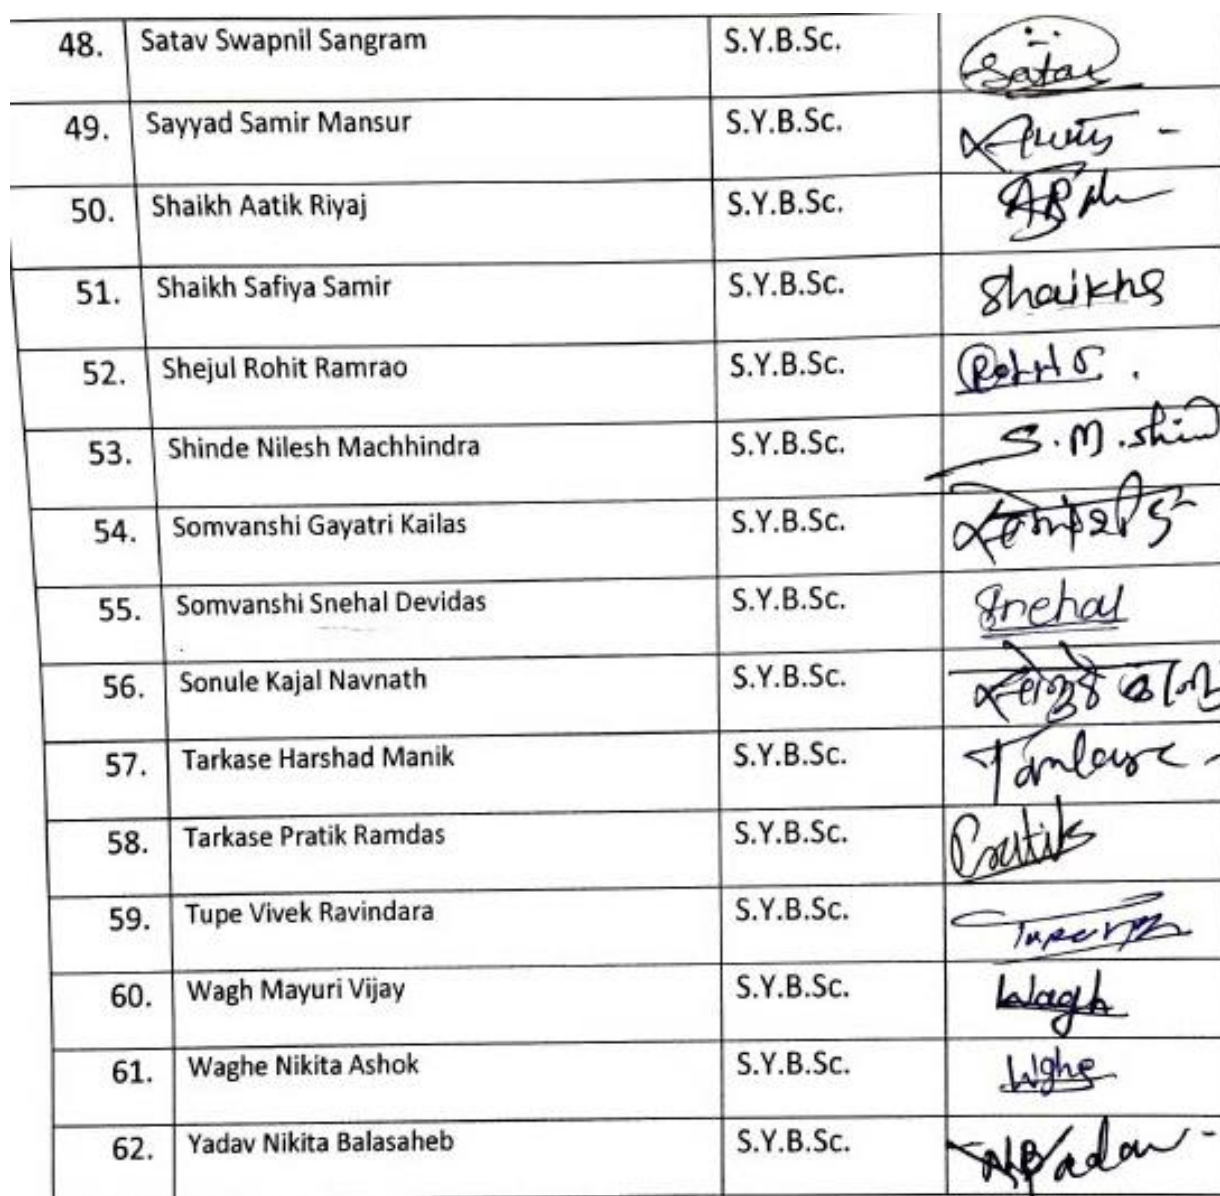 48. Satav Swapnil Sangram S.Y.B.Sc. Satav
49. Sayyad Samir Mansur S.Y.B.Sc.
50. Shaikh Aatik Riyaj S.Y.B.Sc.
51. Shaikh Safiya Samir S.Y.B.Sc. Shaikhs
52. Shejul Rohit Ramrao S.Y.B.Sc.
53. Shinde Nilesh Machhindra S.Y.B.Sc. S.M.Shind
54. Somvanshi Gayatri Kailas S.Y.B.Sc.
55. Somvanshi Snehal Devidas S.Y.B.Sc. Snehal
56. Sonule Kajal Navnath S.Y.B.Sc.
57. Tarkase Harshad Manik S.Y.B.Sc.
58. Tarkase Pratik Ramdas S.Y.B.Sc. Pratik
59. Tupe Vivek Ravindara S.Y.B.Sc.
60. Wagh Mayuri Vijay S.Y.B.Sc. Wagh
61. Waghe Nikita Ashok S.Y.B.Sc. Wghe
62. Yadav Nikita Balasaheb S.Y.B.Sc.